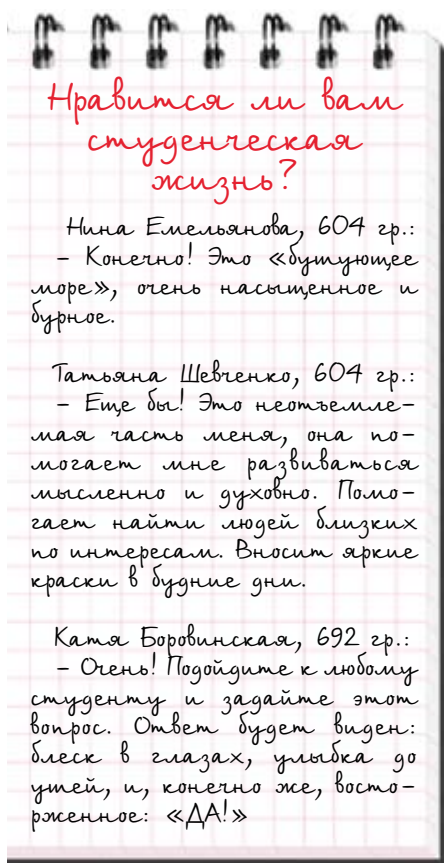 Нравится ли вам
студенческая
жизнь?
Нина Емельянова, 604 гр.:
– Конечно! Это «бушующее
море», очень насыщенное и
бурное.
Татьяна Шевченко, 604 гр.:
– Еще бы! Это неотъемле-
мая часть меня, она по-
могает мне развиваться
мысленно и духовно. Помо-
гает найти людей близких
по интересам. Вносит яркие
краски в будние дни.
Катя Боровинская, 692 гр.:
– Очень! Подойдите к любому
студенту и задайте этот
вопрос. Ответ будет виден:
блеск в глазах, улыбка до
ушей, и, конечно же, восто-
рженное: «ДА!»